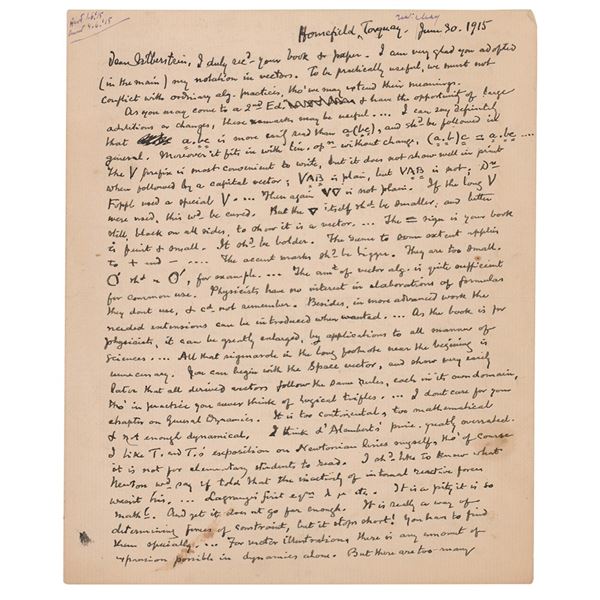 Homefield, Torquay. June 30. 1915
Dear Silberstein, I duly recd. your book & paper. I am very glad you adopted
(in the main) my notation in vectors. To be practically useful, we must not
conflict with ordinary alg. practices, tho' we may extend their meanings.
As you may come to a 2nd Ed. & have the opportunity of large
additions or changes, these remarks may be useful.... I can say definitely
that a.bc is more easily read than a(bc), and shd be followed in
general. Moreover it fits in with lin. opn without change, (a.b)c = a.bc ....
The V prefix is most convenient to write, but it does not show well in print
when followed by a capital vector; VAB is plain, but VAB is not; Dr
Föppl used a special V.... Then again V∇ is not plain. If the long V
were used, this wd be cured. But the ∇ itself shd be smaller, and better
still, black on all sides, to show it is a vector.... The = sign in your book
is faint & small. It shd be bolder. The same to some extent applies
to + and - .... The accent marks shd be bigger. They are too small.
O' shd = O', for example.... The amt of vector alg. is quite sufficient
for common use. Physicists have no interest in elaborations of formulas
they dont use, & cd not remember. Besides, in more advanced work the
needed extensions can be introduced when wanted.... As the book is for
physicists, it can be greatly enlarged, by applications to all manner of
sciences.... All that rigmarole in the long footnote near the beginning is
unnecessary. You can begin with the space vector, and show very early
later that all derived vectors follow the same rules, each in its own domain,
tho' in practice you never think of logical trifles.... I dont care for your
chapter on General Dynamics. It is too continental, too mathematical
& not enough dynamical. I think d'Alembert's princ. greatly overrated.
I like T. and T.'s exposition on Newtonian lines myself, tho' of course
it is not for elementary students to read. I shd like to know what
Newton wd say if told that the inactivity of internal reactive forces
wasnt his.... Lagrange's first eqns λ μ etc. It is a pity it is so
mathl. And yet it does not go far enough. It is really a way of
determining forces of constraint, but it stops short! You have to find
them specially.... For vector illustrations there is any amount of
expansion possible in dynamics alone. But there are too many